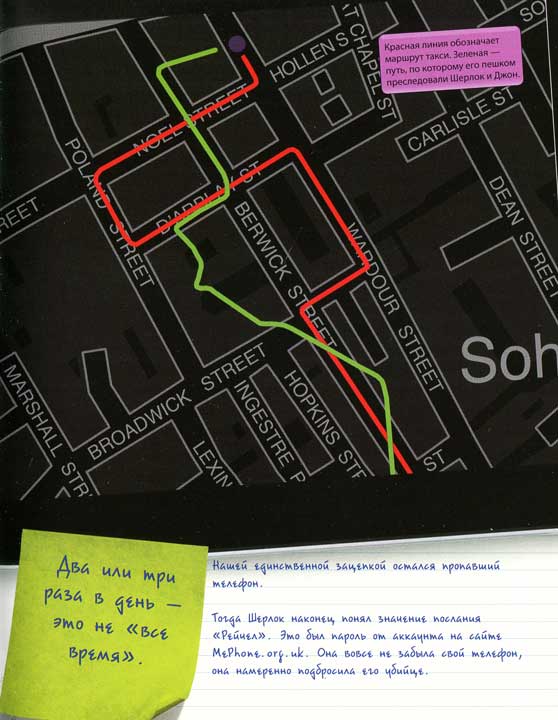 SO
HOLLEN S
T CHAPEL ST
Красная линия обозначает
маршрут такси. Зеленая —
путь, по которому его пешком
преследовали Шерлок и Джон.
CARLISLE ST
NOEL STREET
POLAND STREET
D'ARBLAY ST
REET
BERWICK STREET
WARDOUR STREET
DEAN STREET
Soh
BROADWICK STREET
MARSHALL STR
HOPKINS STR
INGESTRE P
LEXIN
ST
Два или три
раза в день —
это не «все
время».
Нашей единственной зацепкой остался пропавший
телефон.
Тогда Шерлок наконец понял значение послания
«Рейчел». Это был пароль от аккаунта на сайте
MePhone.org.uk. Она вовсе не забыла свой телефон,
она намеренно подбросила его убийце.